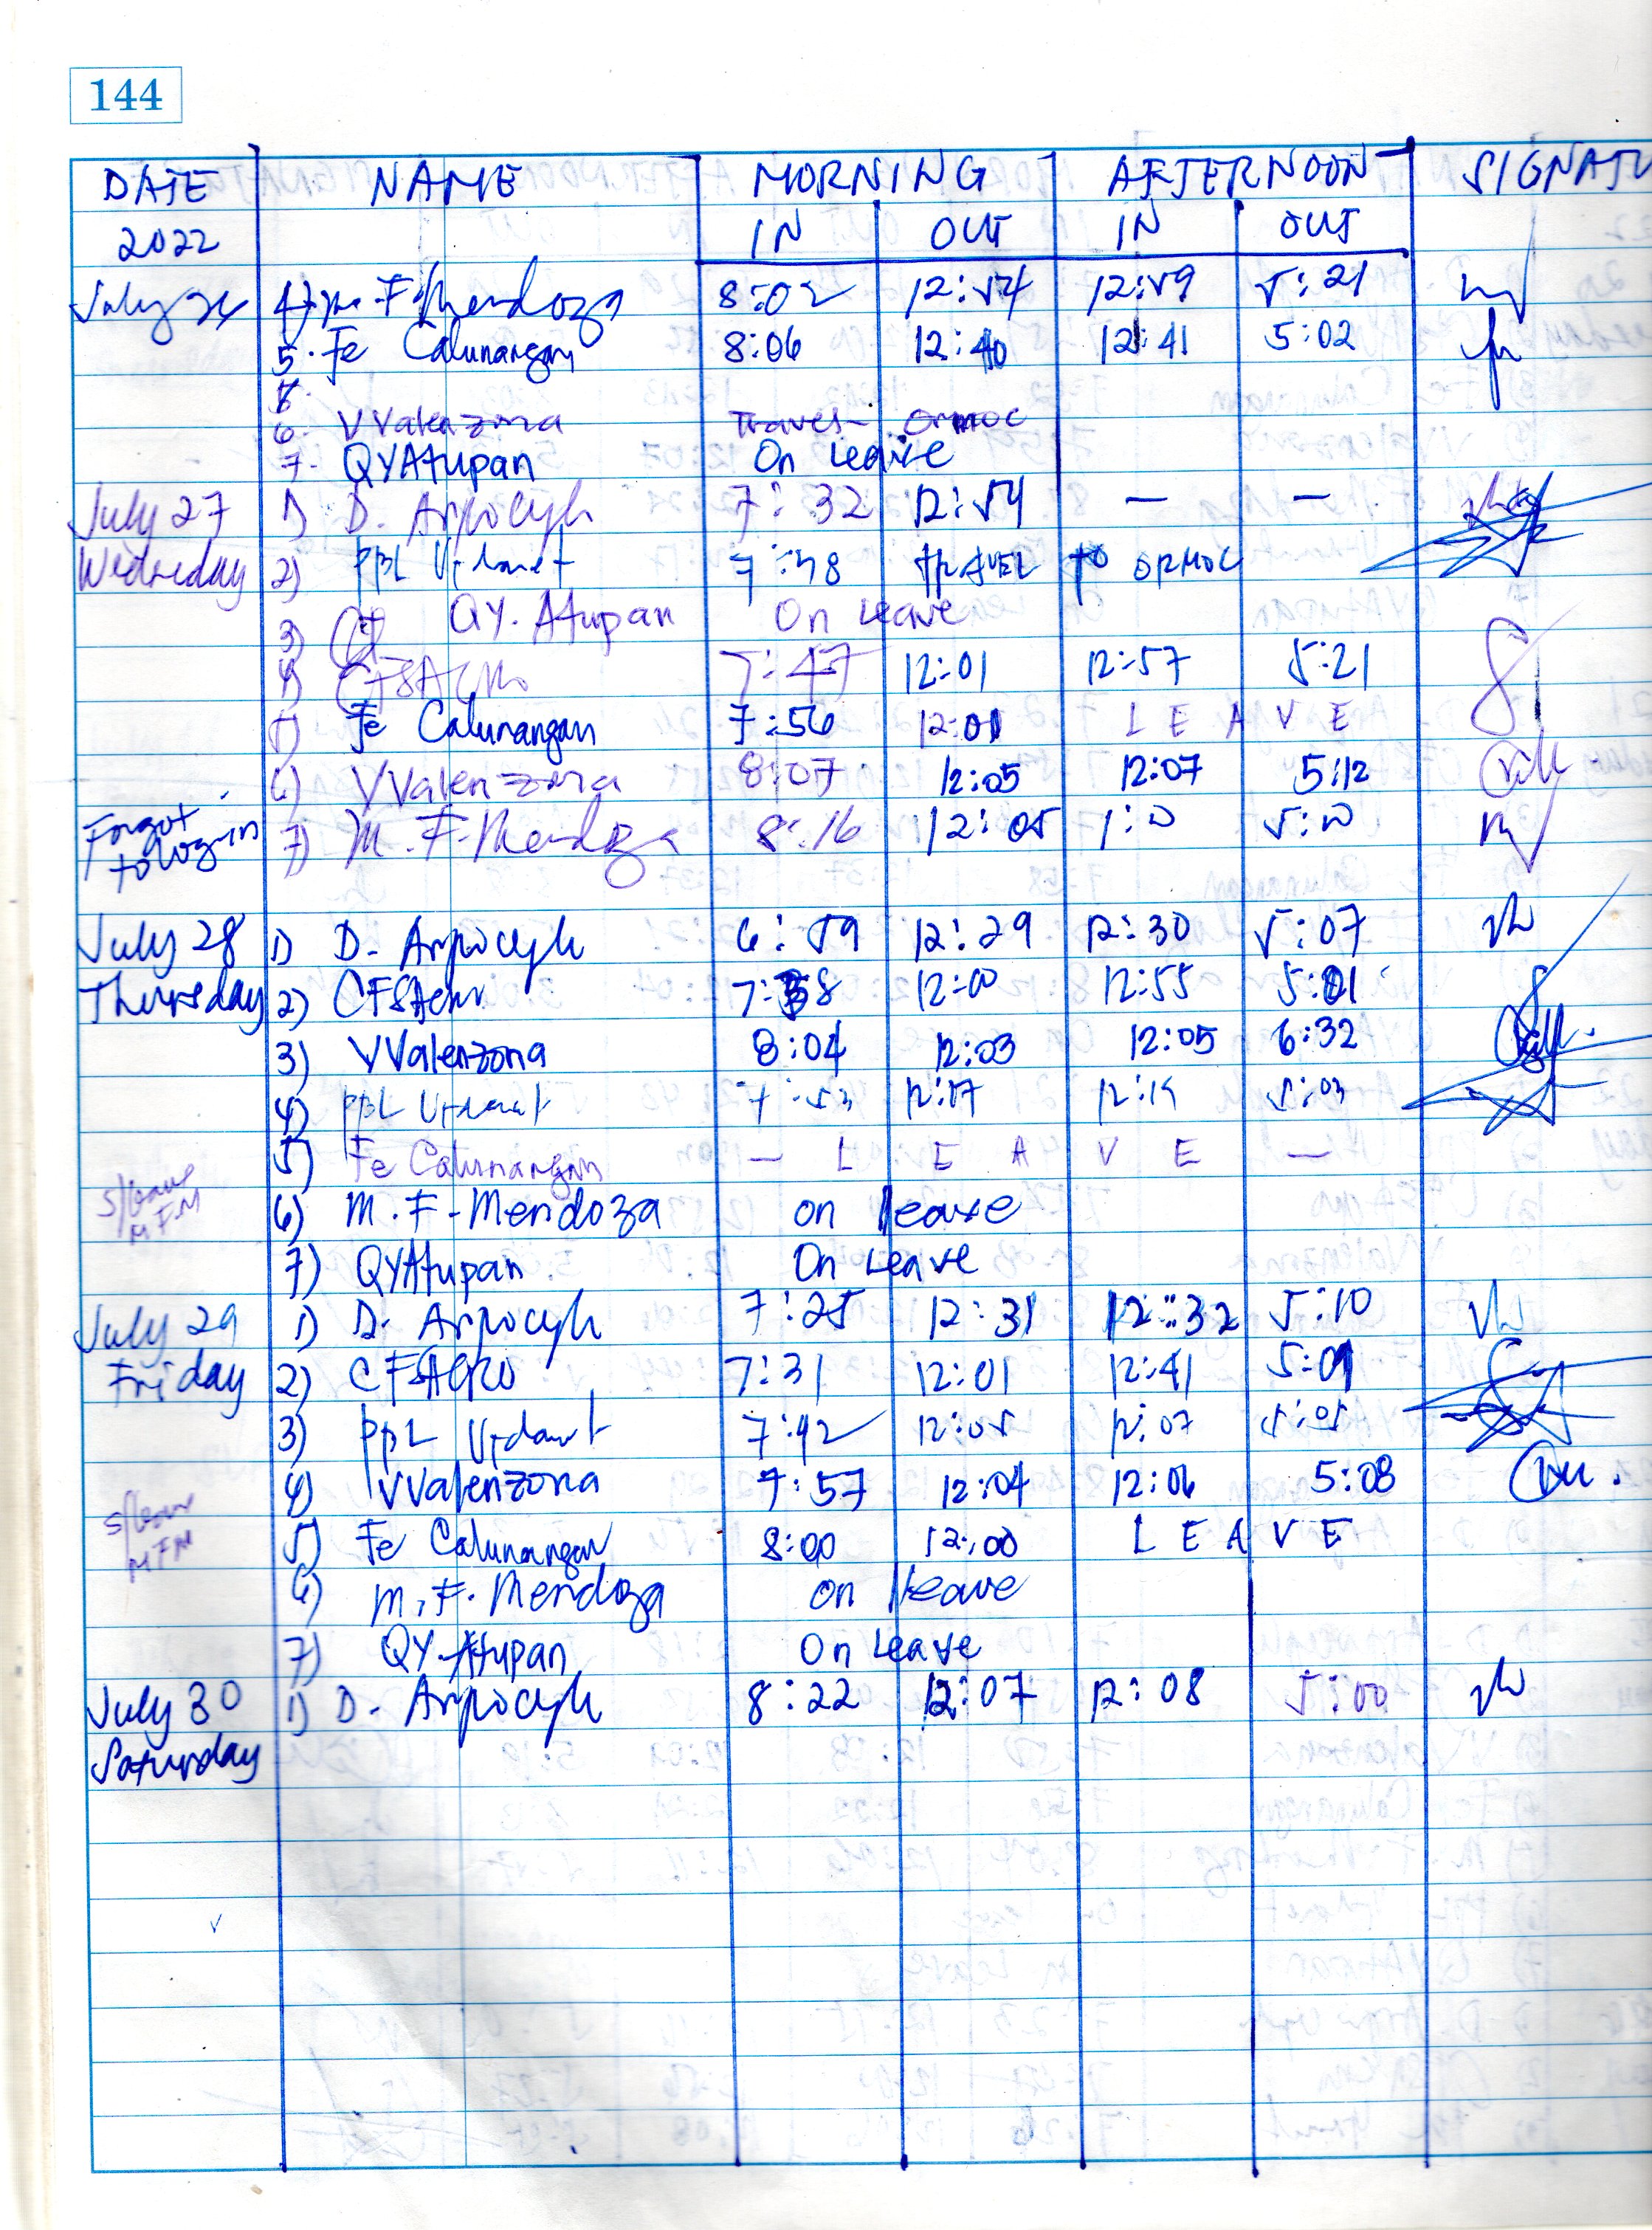 144
DATE NAME MORNING AFTERNOON SIGNATU
2022 IN OUT IN OUT
July 26 4) M. F. Mendoza 8:02 12:54 12:59 5:21
5. Fe Calunangan 8:06 12:40 12:41 5:02
6. VValenzona Travel Ormoc
7. QYAtupan On Leave
July 27 1) D. 7:32 12:54 — —
Wednesday 2) PBL 7:48 TRAVEL TO ORMOC
3) QY. Atupan On Leave
4) 7:47 12:01 12:57 5:21
5) Fe Calunangan 7:56 12:01 L E A V E
6) VValenzona 8:07 12:05 12:07 5:12
Forgot to log-in 7) M. F. Mendoza 8:16 12:05 1:00 5:00
July 28 1) D. 6:59 12:29 12:30 5:07
Thursday 2) 7:38 12:00 12:55 5:01
3) VValenzona 8:04 12:03 12:05 6:32
4) PBL 7:53 12:17 5:03
5) Fe Calunangan — L E A V E —
S/leave MFM 6) M. F. Mendoza on leave
7) QYAtupan On Leave
July 29 1) D. 7:25 12:31 12:32 5:10
Friday 2) 7:31 12:01 12:41 5:01
3) PBL 7:42 12:05 12:07 5:05
4) VValenzona 7:57 12:04 12:06 5:08
S/leave MFM 5) Fe Calunangan 8:00 12:00 L E A V E
6) M. F. Mendoza on leave
7) QY Atupan On Leave
July 30 1) D. 8:22 12:07 12:08 5:00
Saturday